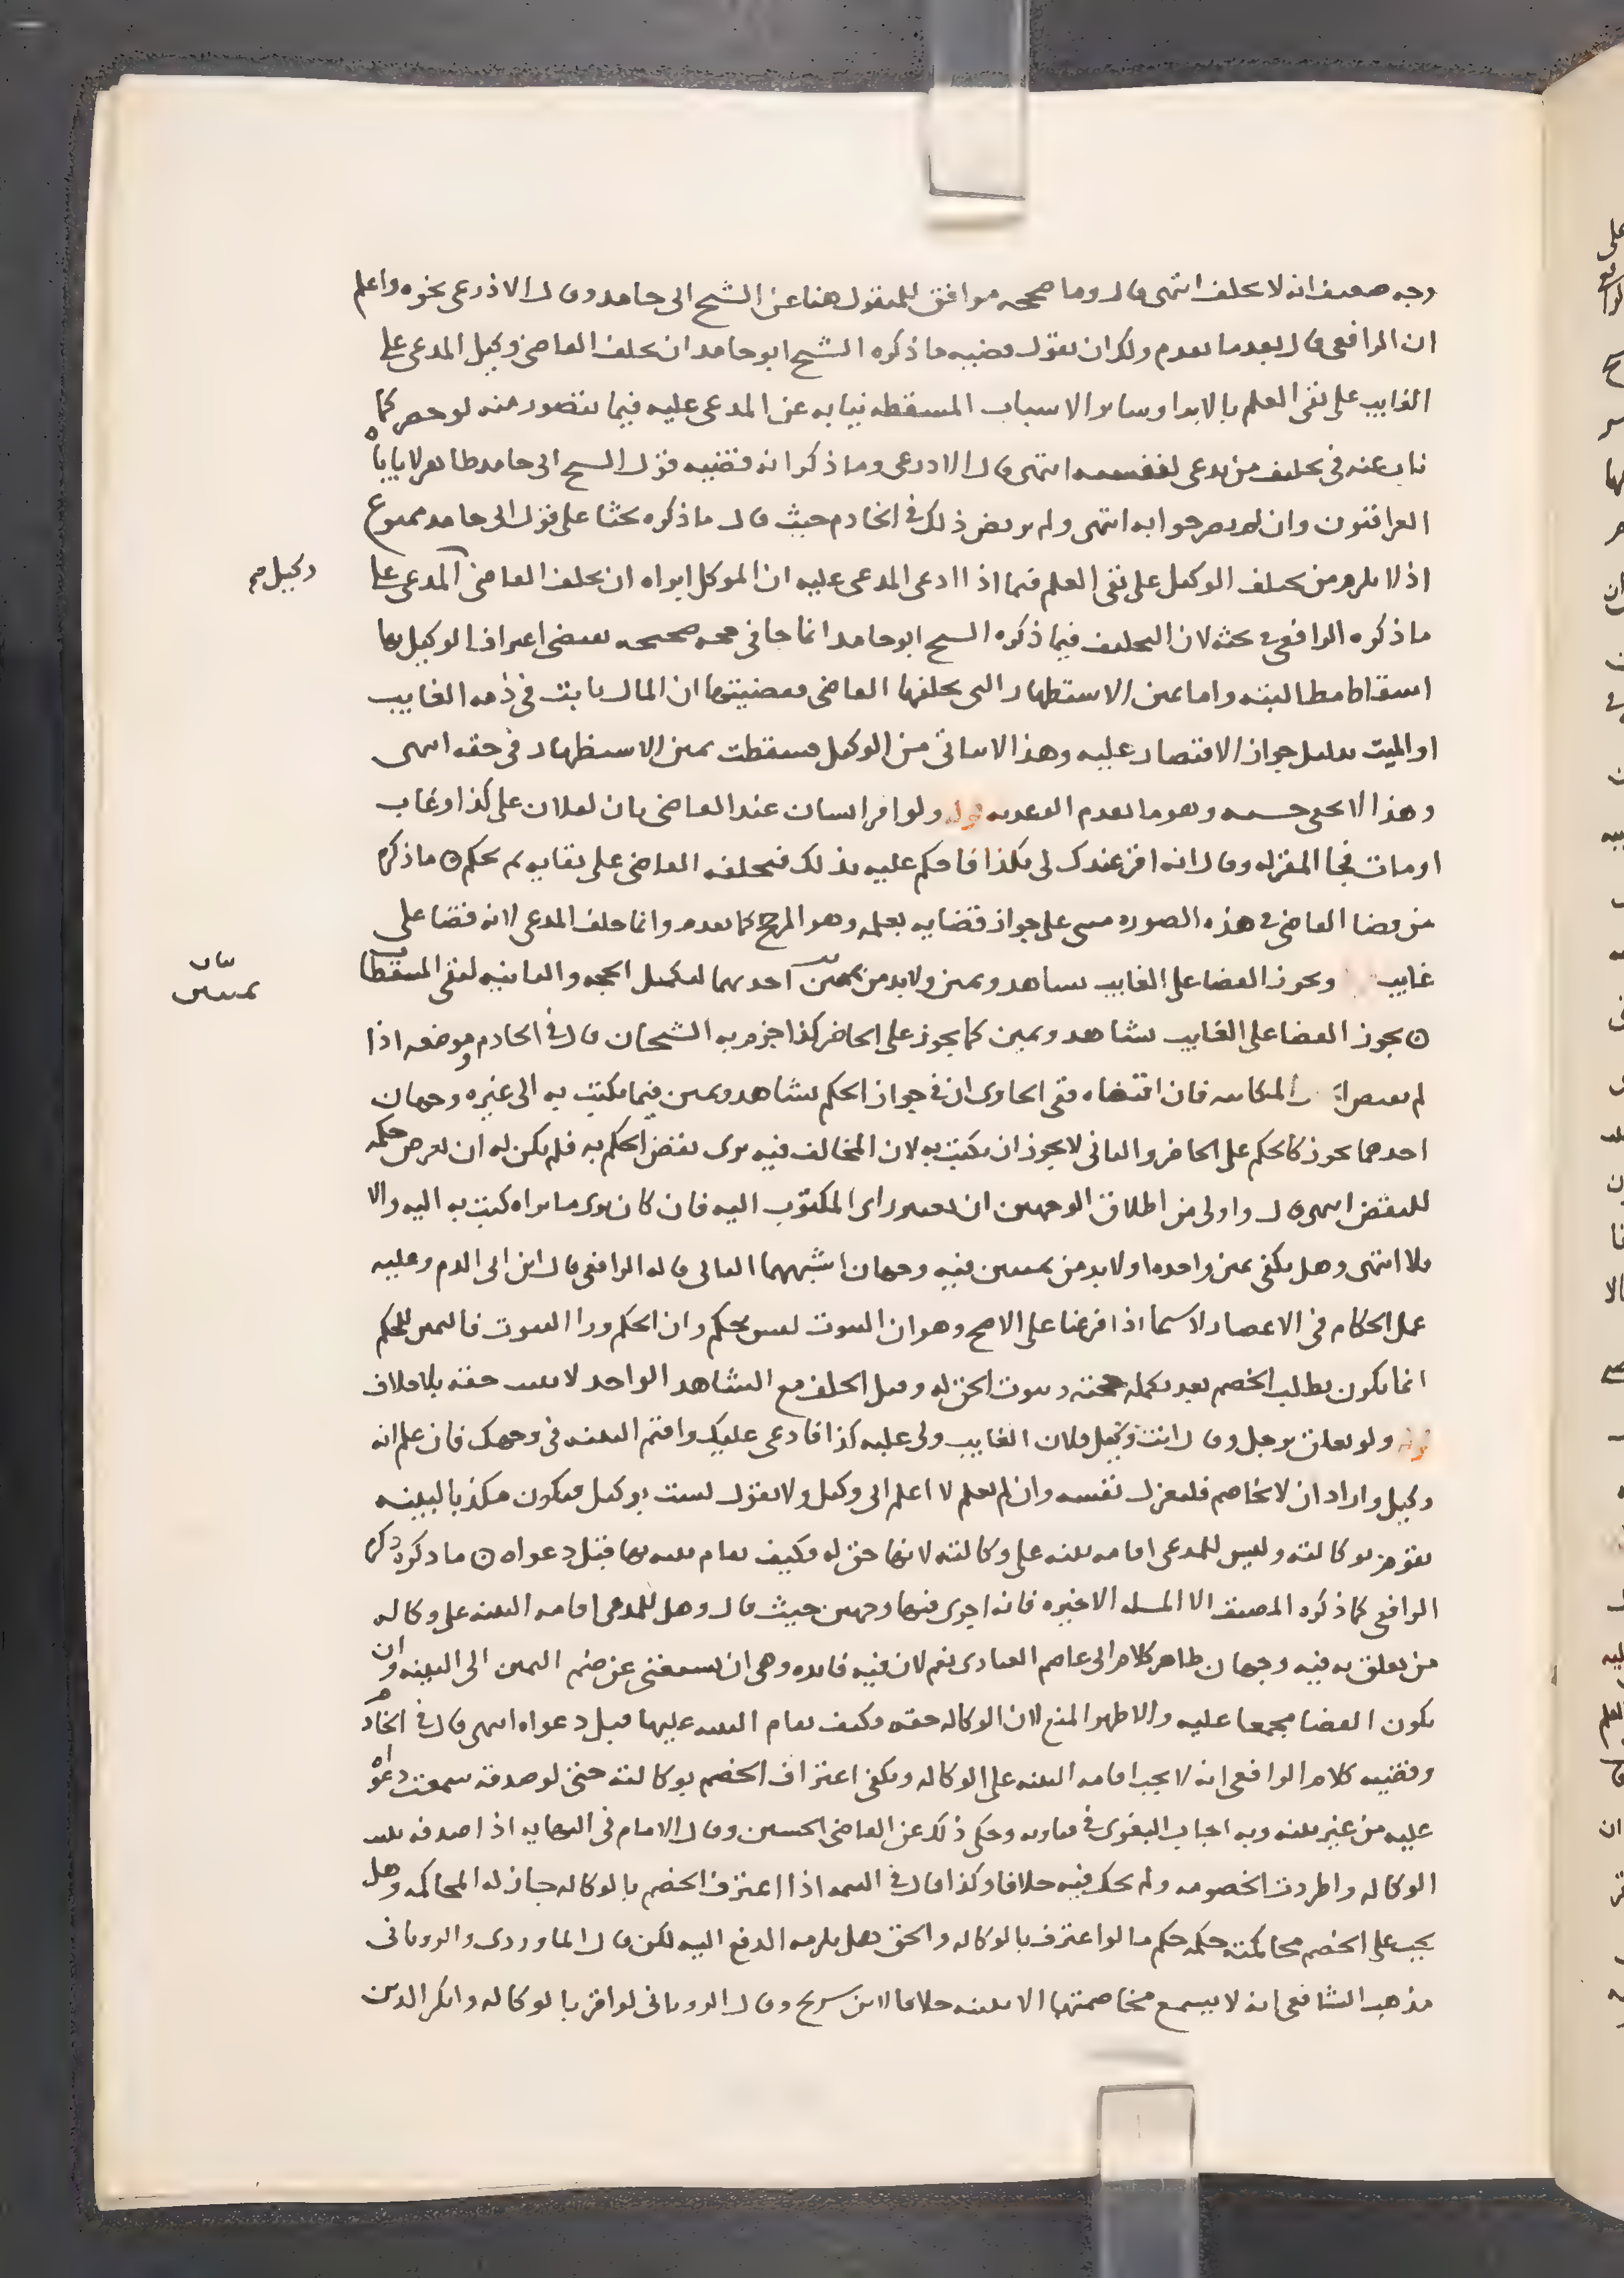 وجه ضعيف انه لا يحلف انتهى قال وما صححه موافق للمنقول هنا عن الشيخ ابى حامد وقال الاذرعى نحوه واعلم
ان الرافعى قال بعد ما تقدم ولك ان تقول قضيه ما ذكره الشيخ ابو حامد ان يحلف القاضى وكيل المدعى على
الغايب على نفى العلم بالابرا وساير الاسباب المسقطه نيابه عن المدعى عليه فيما يتصور منه لو حضر كما
ناب عنه فى تحليف من يدعى لنفسه انتهى قال الاذرعى وما ذكر انه قضيه قول الشيخ ابى حامد ظاهر لا ياباه
العراقيون وان لم يصر جوابه انتهى ولم يرتض ذلك فى الخادم حيث قال ما ذكره بحثا على قول ابى حامد ممنوع
اذ لا يلزم من تحليف الوكيل على نفى العلم فيما اذا ادعى المدعى عليه ان الموكل ابراه ان يحلف القاضى المدعى على
وكيل صح
ما ذكره الرافعى فى بحثه لان التحليف فيما ذكره الشيخ ابو حامد انما جا فى صحيحه يقتضى اعتراف الوكيل بها
اسقاط مطالبته واما يمين الاستظهار التى يحلفها القاضى فقضيتها ان المال ثابت فى ذمه الغايب
او الميت بدليل جواز الاقتصار عليه وهذا لا ياتى من الوكيل فسقطت يمين الاستظهار فى حقه انتهى
وهذا لا يخفى حسنه وهو ما تقدم قوله ولو اقر انسان عند القاضى بان لفلان على كذا وغاب
او مات فجا المقر له وقال انه اقر عندك لى بكذا فاحكم عليه بذلك فيحلفه القاضى على بقايه ثم يحكم ۞ ما ذكره
من قضا القاضى فى هذه الصوره مبنى على جواز قضايه بعلمه وهو المرجح كما تقدم وانما حلف المدعى لانه قضا على
غايب ويجوز القضا على الغايب بشاهد ويمين ولا بد من يمينين احدهما لتكميل الحجه والثانيه لنفى المسقطات
بيان
يمينين
۞ يجوز القضا على الغايب بشاهد ويمين كما يجوز على الحاضر كذا جزم به الشيخان قال فى الخادم وموضعه اذا
لم يقتض المكاتبه فان اقتضاه ففى الحاوى ان فى جواز الحكم بشاهد ويمين فيما يكتب به الى غيره وجهان
احدهما يجوز كالحكم على الحاضر والثانى لا يجوز ان يكتب به لان المخالف فيه يرى نقض الحكم به فلم يكن له ان يعرض حكمه
للنقض انتهى قال واولى من اطلاق الوجهين ان يعتبر راى المكتوب اليه فان كان يرى ما يراه كتب به اليه والا
فلا انتهى وهل يكفى يمين واحده او لا بد من يمينين فيه وجهان اشبههما الثانى قاله الرافعى قال ابن ابى الدم وعليه
عمل الحكام فى الاعصار لا سيما اذا فرعنا على الاصح وهو ان الثبوت ليس بحكم وان الحكم ورا الثبوت فاليمين للحكم
انما يكون بطلب الخصم بعد تكمله حجته وثبوت الحق له وقبل الحلف مع الشاهد الواحد لا يثبت حقه بلا خلاف
قوله ولو تعلق برجل وقال انت وكيل فلان الغايب ولى عليه كذا فادعى عليك واقيم البينه فى وجهك فان علم انه
وكيل واراد ان لا يخاصم فليعزل نفسه وان لم يعلم لا اعلم انى وكيل ولا يقول لست بوكيل فيكون مكذبا لبينه
تقوم بوكالته وليس للمدعى اقامه بينه على وكالته لانها حق له فكيف تقام بينه بها قبل دعواه ۞ ما ذكره ذكره
الرافعى كما ذكره المصنف الا المسله الاخيره فانه اجرى فيها وجهين حيث قال وهل للمدعى اقامه البينه على وكاله
من تعلق به فيه وجهان ظاهر كلام ابى عاصم العبادى نعم لان فيه فايده وهى ان يستغنى عن ضم اليمين الى البينه وان
يكون القضا مجمعا عليه والاظهر المنع لان الوكاله حقه وكيف تقام البينه عليها قبل دعواه انتهى قال فى الخادم
وقضيه كلام الرافعى انه لا يجب اقامه البينه على الوكاله ويكفى اعتراف الخصم بوكالته حتى لو صدقه سمعت دعواه
عليه من غير بينه وبه اجاب البغوى فى فتاويه وحكى ذلك عن القاضى الحسين وقال الامام فى النهايه اذا صدقه ثبتت
الوكاله واطردت الخصومه ولم يحك فيه خلافا وكذا قال فى التتمه اذا اعترف الخصم بالوكاله جاز له المحاكمه وهل
يجب على الخصم محاكمته حكمه حكم ما لو اعترف بالوكاله والحق هل يلزمه الدفع اليه لكن قال الماوردى والرويانى
مذهب الشافعى انه لا يسمع مخاصمتها الا ببينه خلافا لابن سريج وقال الرويانى لو اقر بالوكاله وانكر الدين